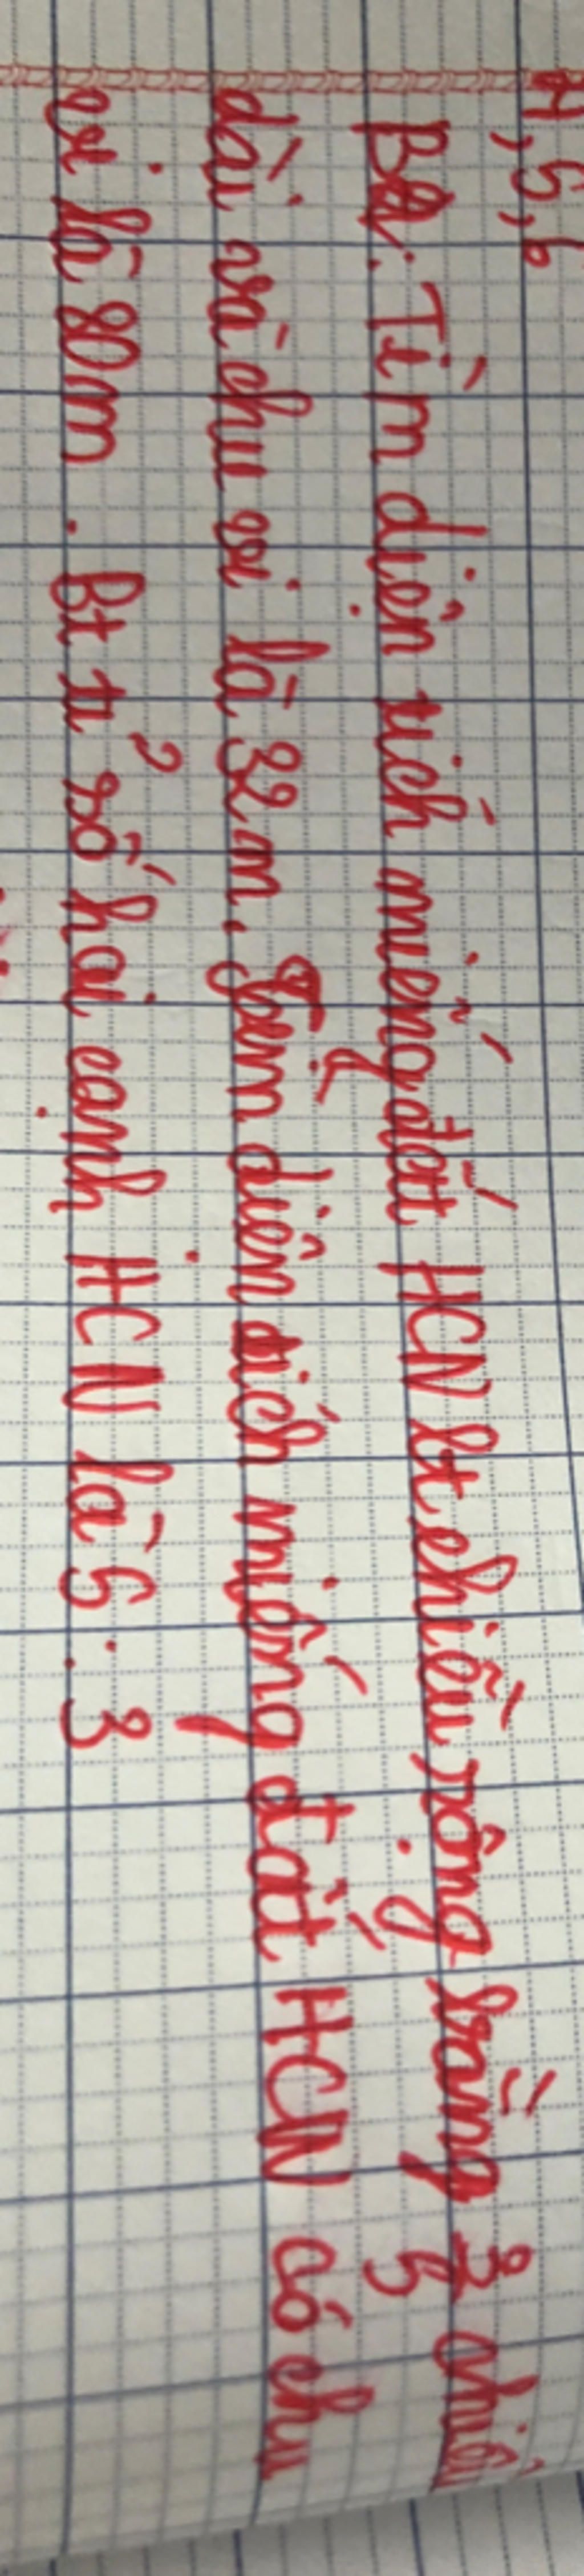 4, 5, 6
Ba. Tìm diện tích miếng đất HCN bt chiều rộng bằng 3/5 chiều
dài và chu vi là 32m. Tìm diện tích miếng đất HCN có chu
vi là 80m. Bt tỉ số hai cạnh HCN là 5:3